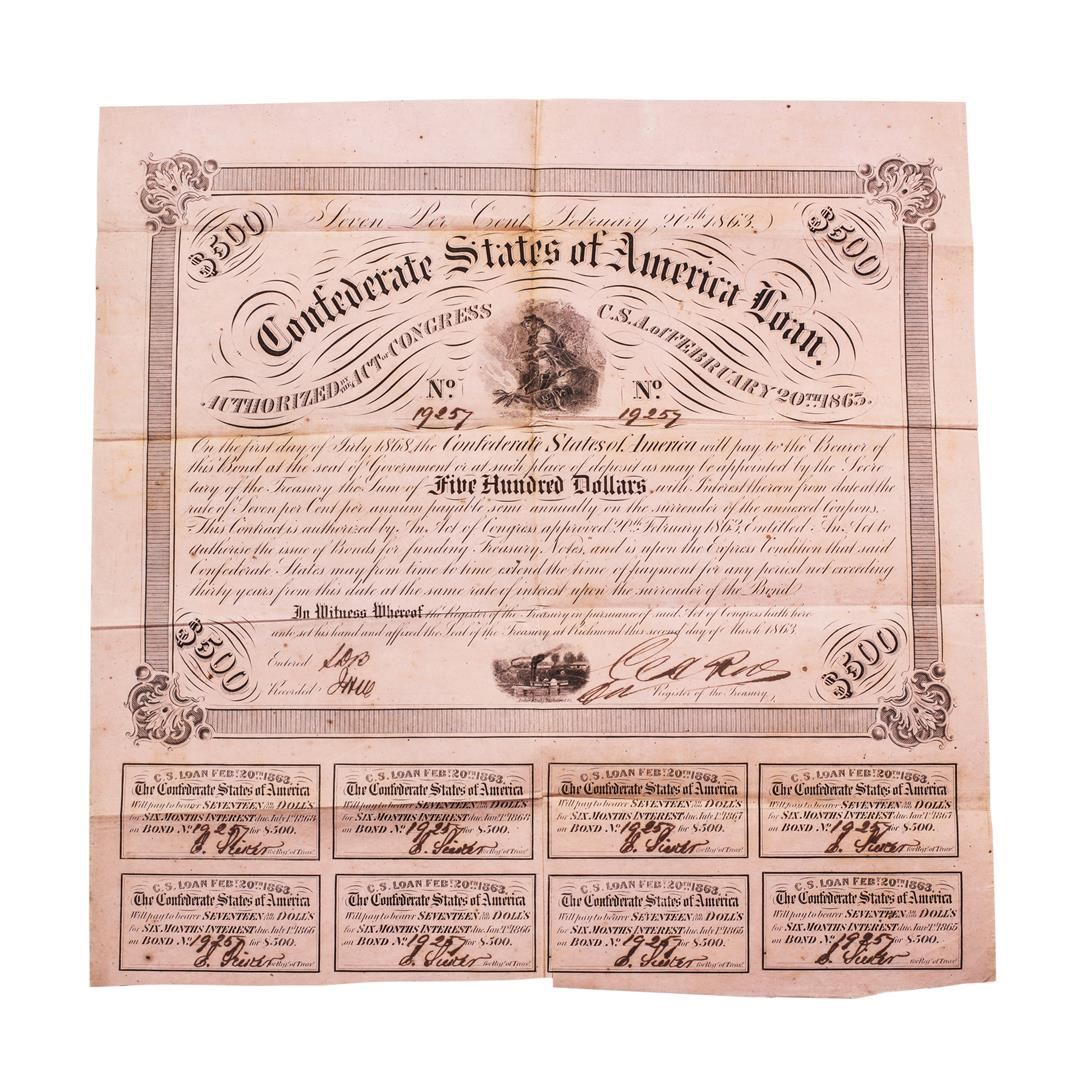 $500
Seven Per Cent February, 20th 1863.
$500
Confederate States of America Loan.
AUTHORIZED BY THE ACT OF CONGRESS C.S.A. of FEBRUARY 20TH 1863.
No. No.
19257 19257
On the first day of July 1868, the Confederate States of America will pay to the Bearer of
this Bond at the seat of Government or at such place of deposit as may be appointed by the Secre
tary of the Treasury the Sum of Five Hundred Dollars, with Interest thereon from date at the
rate of Seven per Cent per annum payable semi annually on the surrender of the annexed Coupons.
This Contract is authorized by An Act of Congress approved 20th February 1863, Entitled "An Act to
authorise the issue of Bonds for funding Treasury Notes," and is upon the Express Condition that said
Confederate States may from time to time extend the time of payment for any period not exceeding
thirty years from this date at the same rate of interest upon the surrender of the Bond
In Witness Whereof the Register of the Treasury in pursuance of said Act of Congress hath here
unto set his hand and affixed the Seal of the Treasury at Richmond this second day of March 1863
$500
Entered
Recorded
Register of the Treasury
$500
C.S. LOAN FEB. 20TH 1863.
The Confederate States of America
Will pay to bearer SEVENTEEN 50/100 DOLL'S
for SIX MONTHS INTEREST due July 1st 1868
on BOND No. 19257 for $500.
for Reg'r of Treas'y
C.S. LOAN FEB. 20TH 1863.
The Confederate States of America
Will pay to bearer SEVENTEEN 50/100 DOLL'S
for SIX MONTHS INTEREST due Jany 1st 1868
on BOND No. 19257 for $500.
for Reg'r of Treas'y
C.S. LOAN FEB. 20TH 1863.
The Confederate States of America
Will pay to bearer SEVENTEEN 50/100 DOLL'S
for SIX MONTHS INTEREST due July 1st 1867
on BOND No. 19257 for $500.
for Reg'r of Treas'y
C.S. LOAN FEB. 20TH 1863.
The Confederate States of America
Will pay to bearer SEVENTEEN 50/100 DOLL'S
for SIX MONTHS INTEREST due Jany 1st 1867
on BOND No. 19257 for $500.
for Reg'r of Treas'y
C.S. LOAN FEB. 20TH 1863.
The Confederate States of America
Will pay to bearer SEVENTEEN 50/100 DOLL'S
for SIX MONTHS INTEREST due July 1st 1866
on BOND No. 19257 for $500.
for Reg'r of Treas'y
C.S. LOAN FEB. 20TH 1863.
The Confederate States of America
Will pay to bearer SEVENTEEN 50/100 DOLL'S
for SIX MONTHS INTEREST due Jany 1st 1866
on BOND No. 19257 for $500.
for Reg'r of Treas'y
C.S. LOAN FEB. 20TH 1863.
The Confederate States of America
Will pay to bearer SEVENTEEN 50/100 DOLL'S
for SIX MONTHS INTEREST due July 1st 1865
on BOND No. 19257 for $500.
for Reg'r of Treas'y
C.S. LOAN FEB. 20TH 1863.
The Confederate States of America
Will pay to bearer SEVENTEEN 50/100 DOLL'S
for SIX MONTHS INTEREST due Jany 1st 1865
on BOND No. 19257 for $500.
for Reg'r of Treas'y